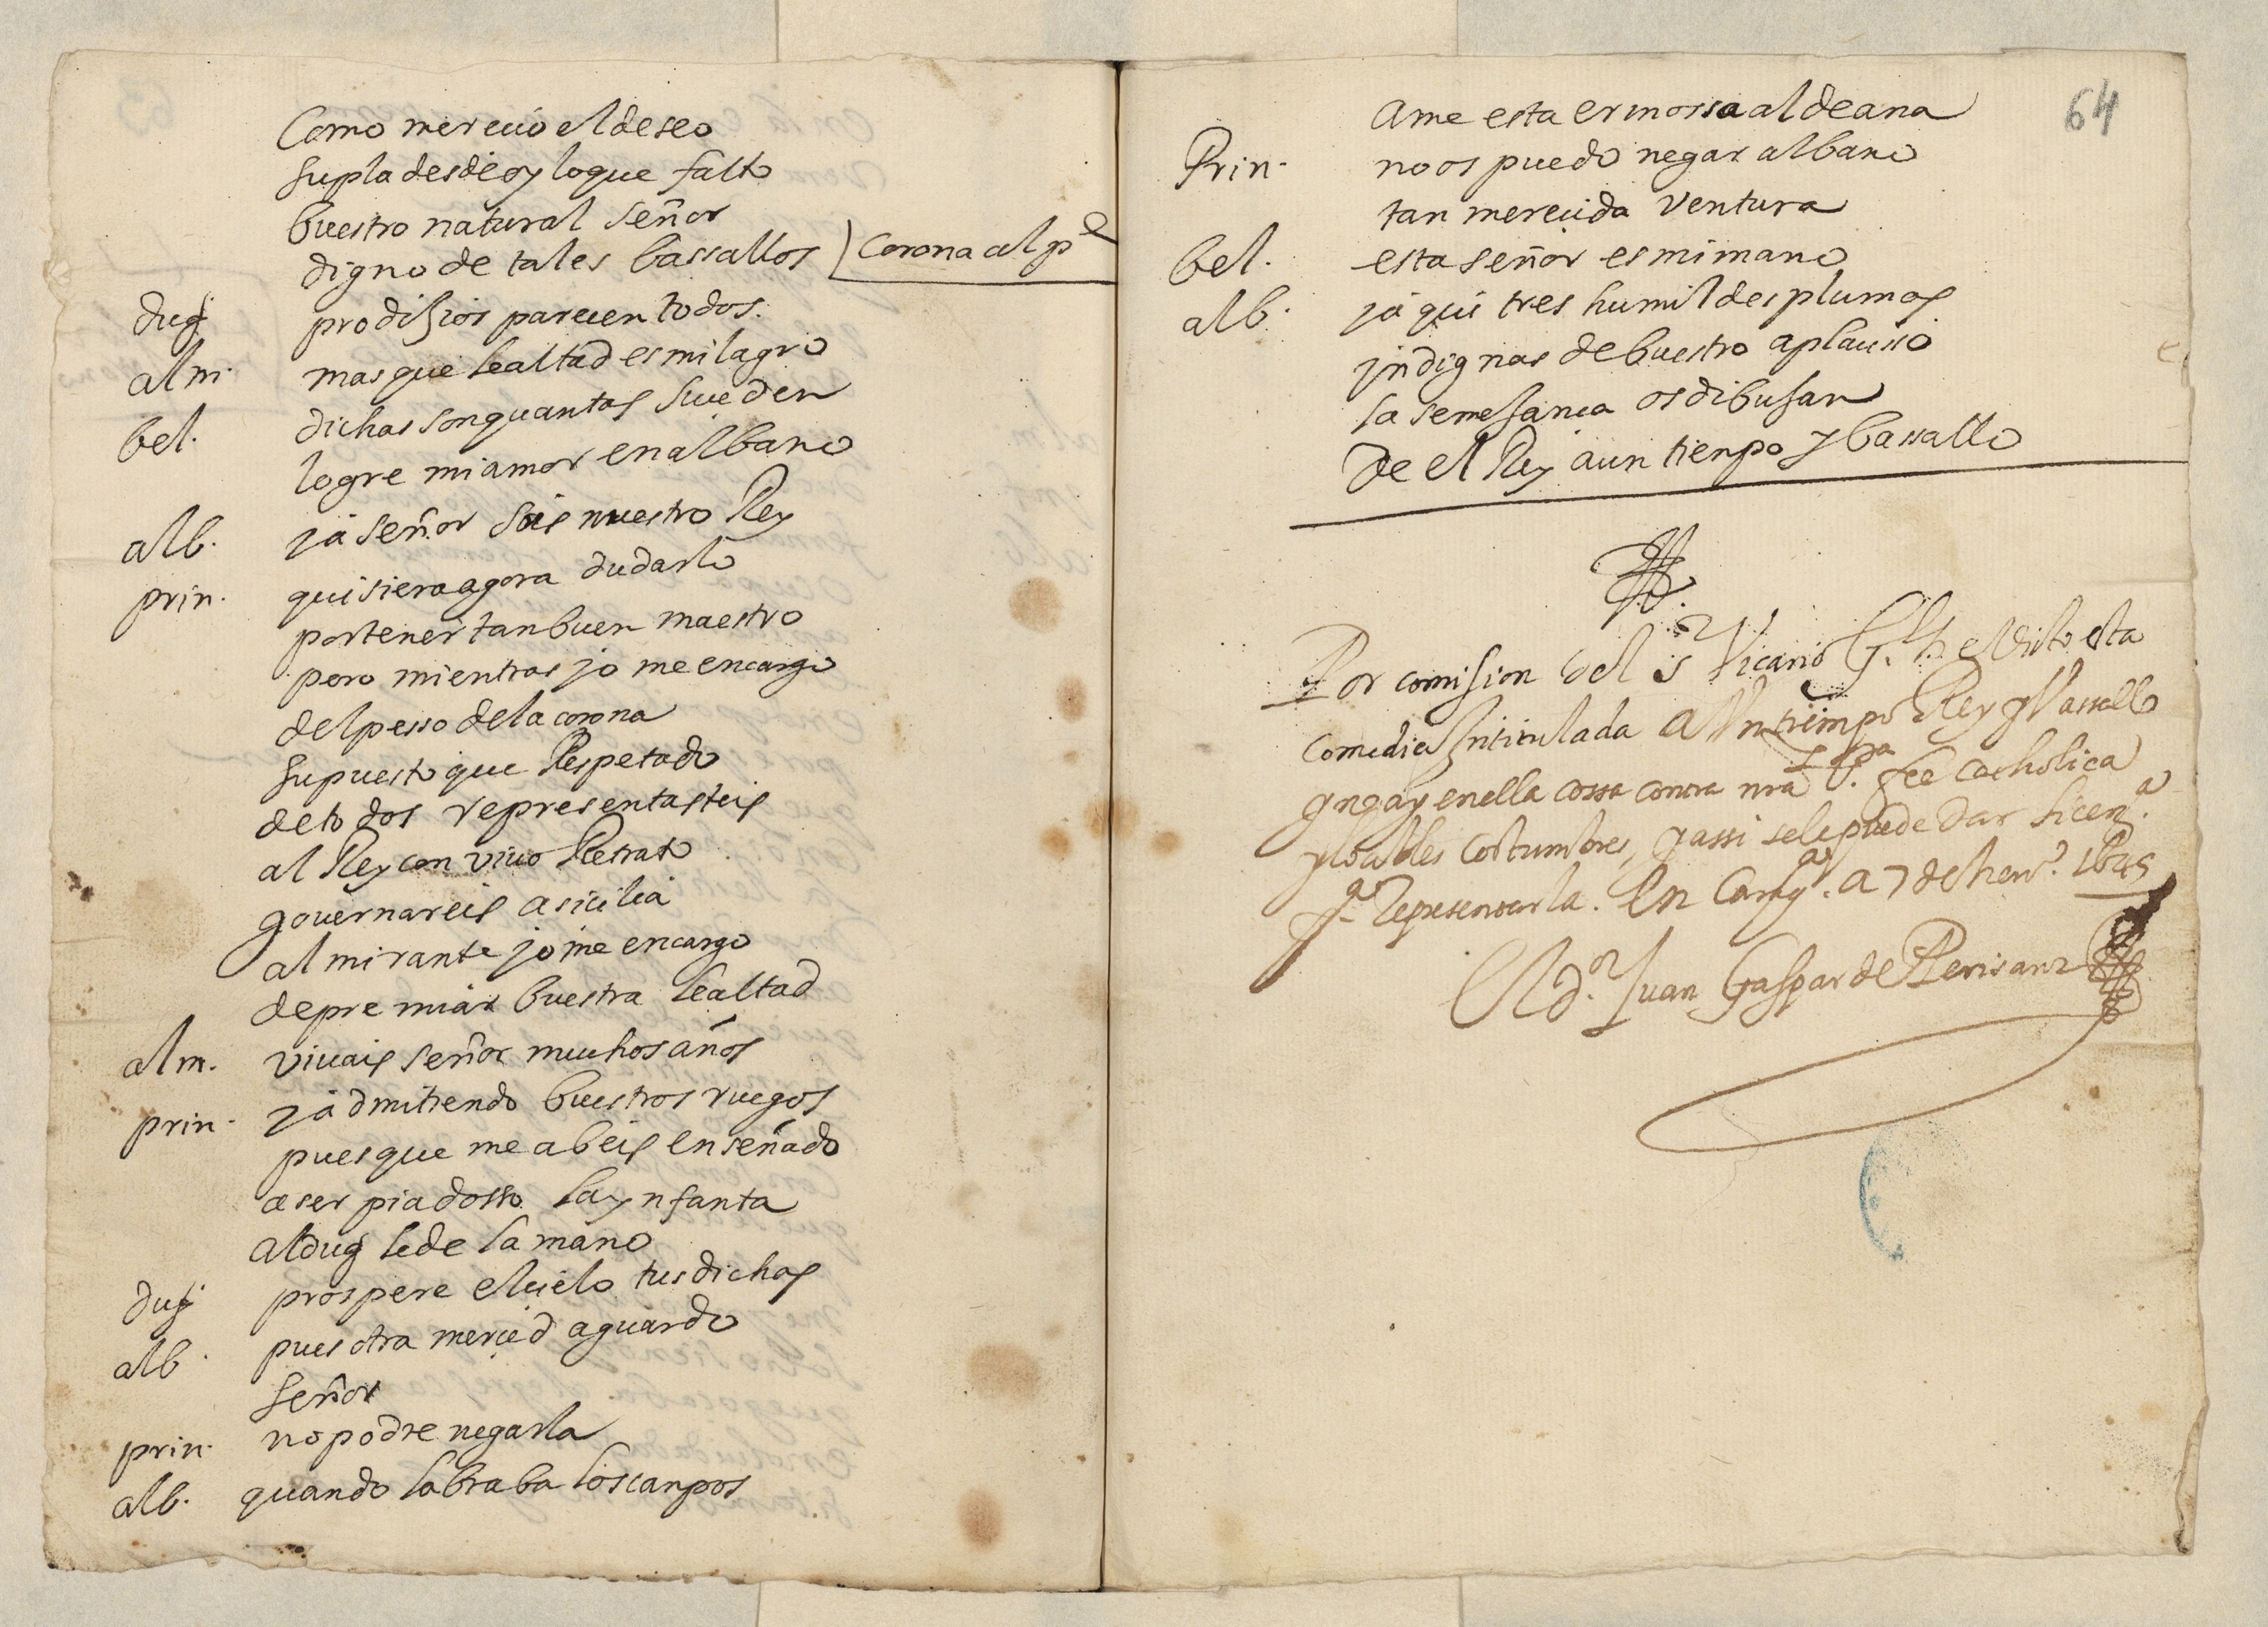 Como merecio el deseo
supla desde oy lo que falto
buestro natural señor
digno de tales bassallos
Corona al pe
duq
prodixios parecen todos.
alm.
mas que lealtad es milagro
bel.
dichas son quantas suceden
logre mi amor en albano
alb.
ja señor sois nuestro Rey
prin.
quisiera agora dudarlo
por tener tan buen maestro
pero mientras jo me encargo
del pesso de la corona
supuesto que Respetado
de todos representasteis
al Rey con vivo Retrato
governareis a sicilia
almirante jo me encargo
de premiar buestra lealtad
alm.
vivais señor muchos años
prin.
jadmitiendo buestros ruegos
pues que me abeis enseñado
a ser piadosso la ynfanta
al duq le de la mano
duq
prospere el cielo tus dichas
alb.
pues otra merced aguardo
señor
prin.
no podre negarla
alb.
quando labraba los canpos
64
ame esta ermossa aldeana
Prin.
no os puedo negar albano
tan merecida ventura
bel.
esta señor es mi mano
alb.
jaqui tres humildes plumas
jndignas de buestro aplausso
la semejança os dibujan
de el Rey a un tienpo y bassallo
Por comision del sr Vicario Gl. he visto esta
comedia Intitulada A Un tiempo Rey y Vassallo
y no ay en ella cossa contra nra sta fee catholica
y loables costumbres, y assi se le puede dar licena.
pa representarla. En Carga. a 7 de hero. 1645
El dor Juan Gaspar de Perisanz